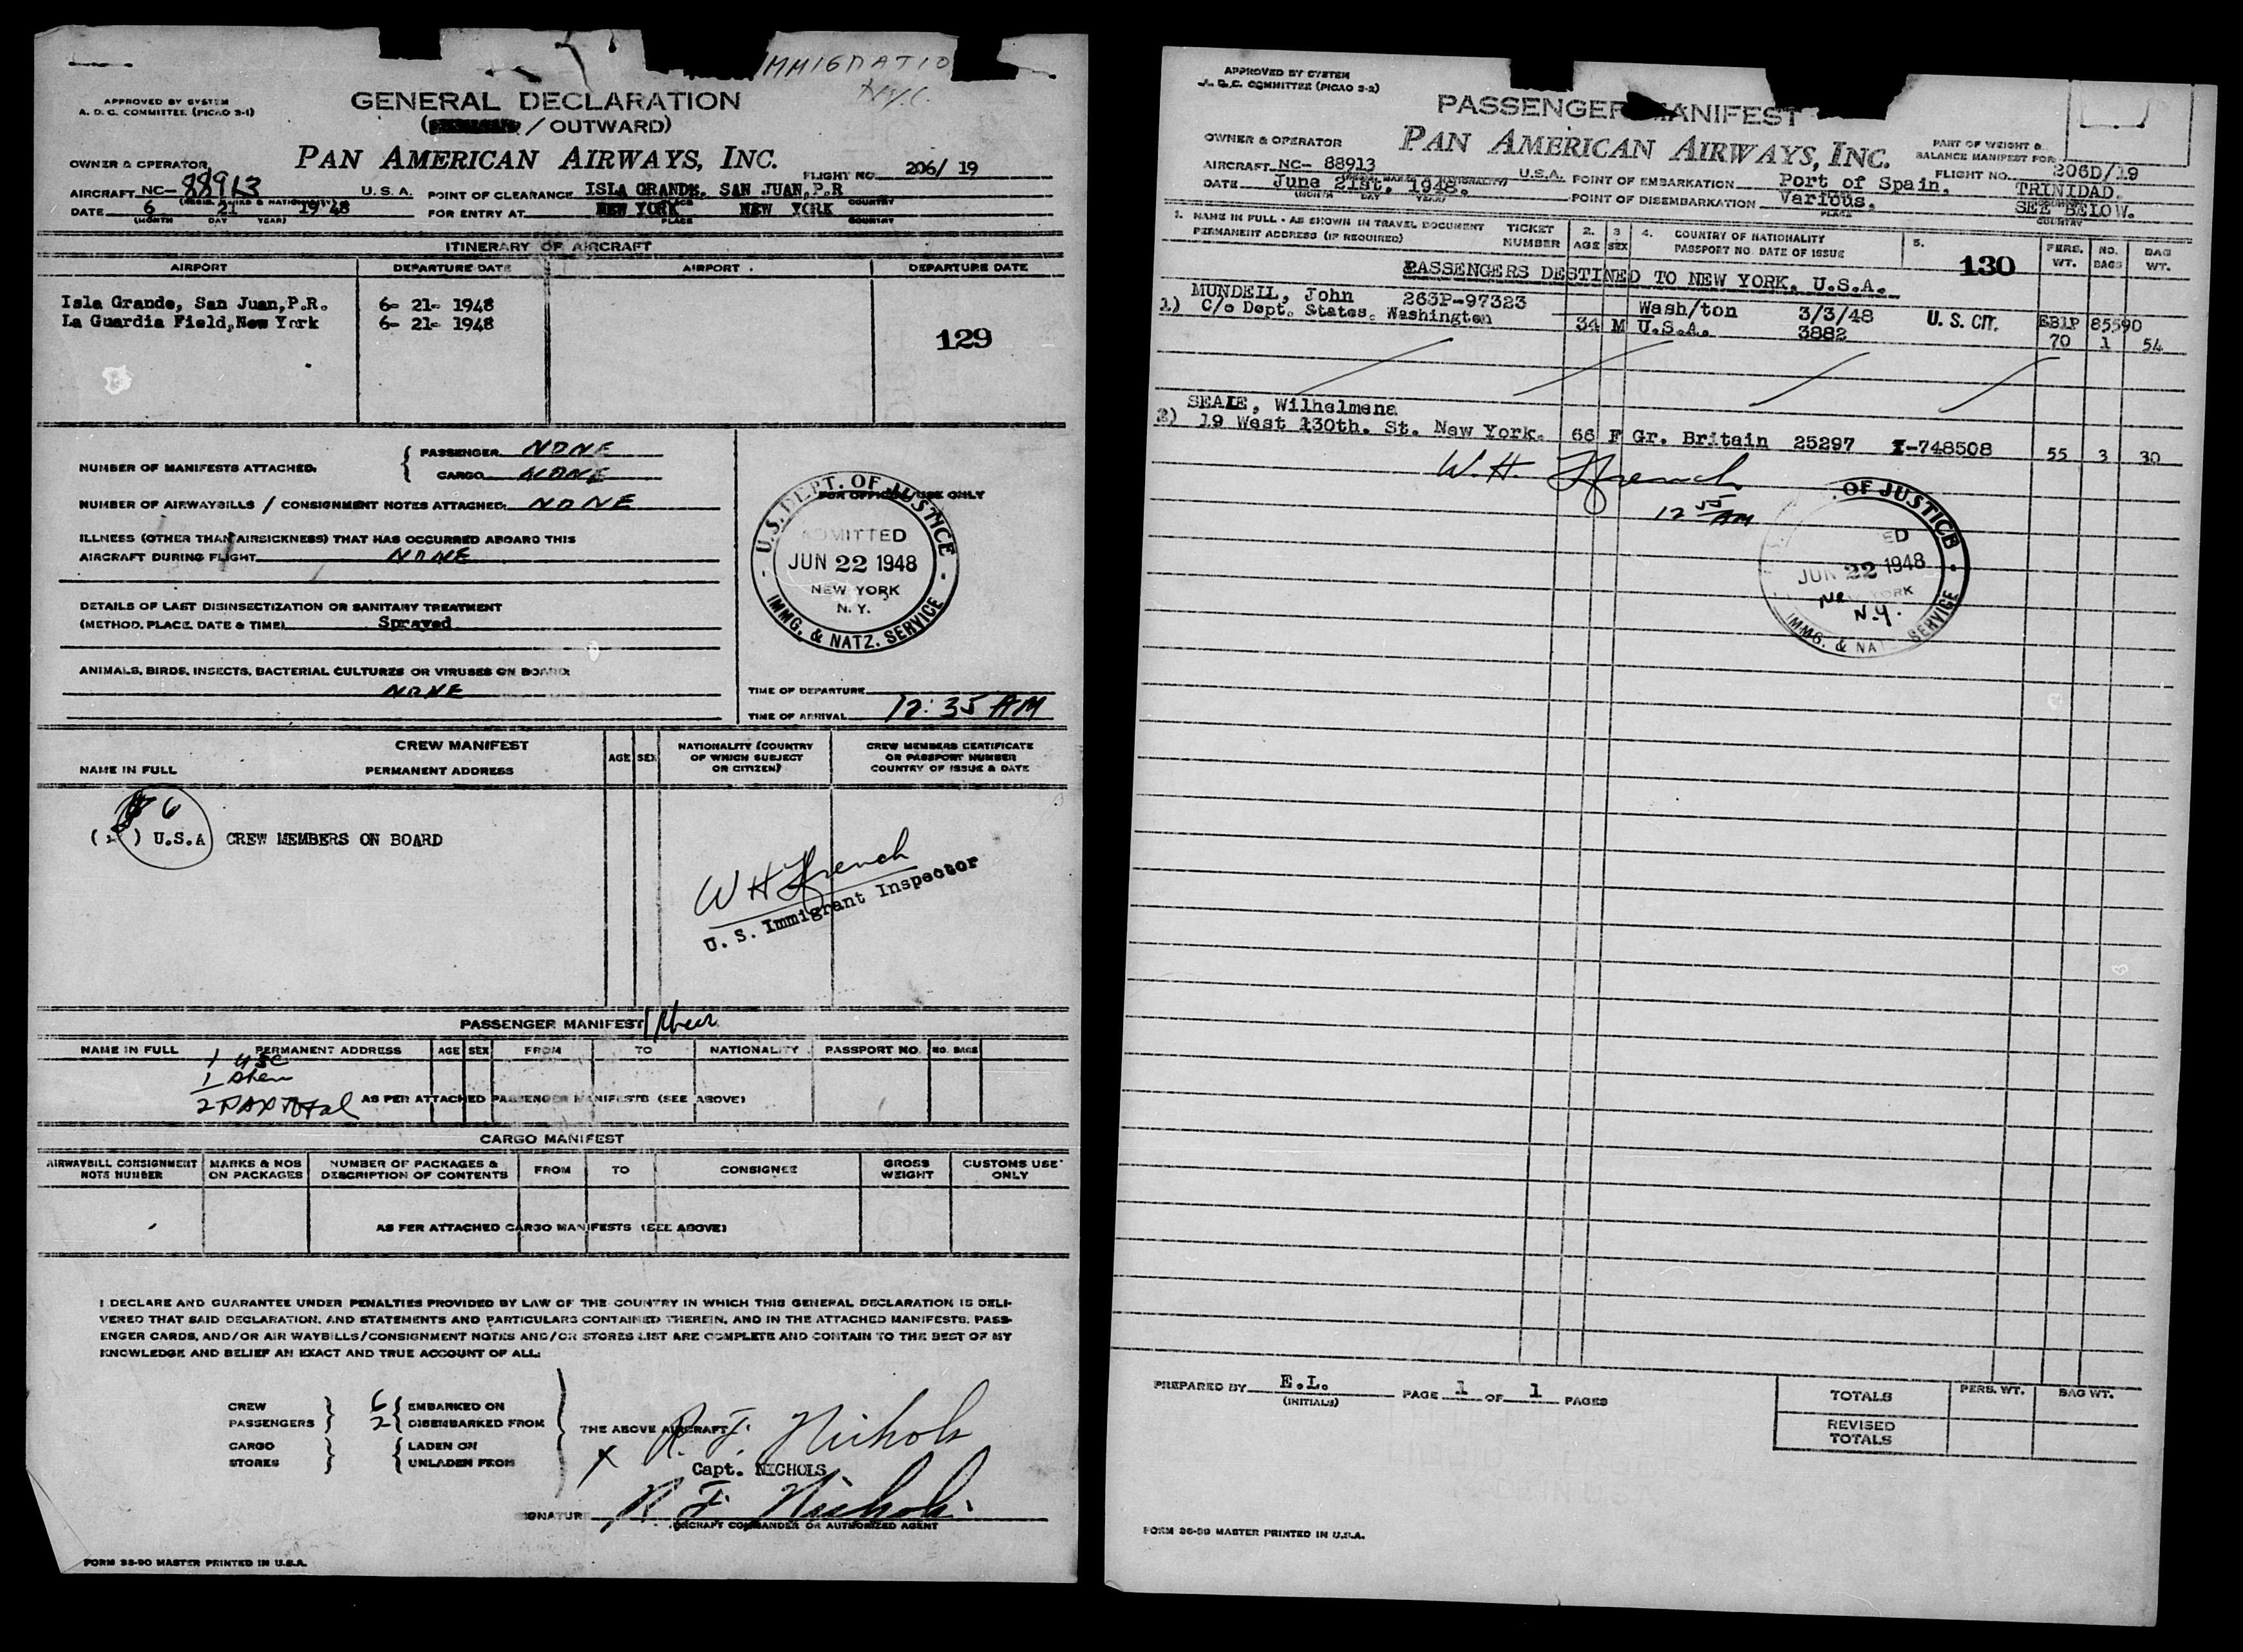 IMMIGRATIO
N.Y.C.
APPROVED BY SYSTEM
A. O. C. COMMITTEE (PICAO 2-1)
GENERAL DECLARATION
( / OUTWARD)
OWNER & OPERATOR
PAN AMERICAN AIRWAYS, INC.
FLIGHT NO. 206/ 19
AIRCRAFT NC- 88913 U.S.A. POINT OF CLEARANCE ISLA GRANDE, SAN JUAN, P.R
DATE 6 21 1948 FOR ENTRY AT NEW YORK NEW YORK
(MONTH DAY YEAR) PLACE COUNTRY
ITINERARY OF AIRCRAFT
AIRPORT DEPARTURE DATE AIRPORT DEPARTURE DATE
Isla Grande, San Juan,P.R. 6- 21- 1948
La Guardia Field,New York 6- 21- 1948
129
NUMBER OF MANIFESTS ATTACHED. { PASSENGER NONE
CARGO NONE
NUMBER OF AIRWAYBILLS / CONSIGNMENT NOTES ATTACHED. NONE
ILLNESS (OTHER THAN AIRSICKNESS) THAT HAS OCCURRED ABOARD THIS
AIRCRAFT DURING FLIGHT NONE
DETAILS OF LAST DISINSECTIZATION OR SANITARY TREATMENT
(METHOD, PLACE, DATE & TIME) Sprayed
ANIMALS, BIRDS, INSECTS, BACTERIAL CULTURES OR VIRUSES ON BOARD:
NONE
FOR OFFICIAL USE ONLY
U.S. DEPT. OF JUSTICE
ADMITTED
JUN 22 1948
NEW YORK
N. Y.
IMMG. & NATZ. SERVICE
TIME OF DEPARTURE
TIME OF ARRIVAL 12:35 AM
CREW MANIFEST
NAME IN FULL PERMANENT ADDRESS AGE SEX NATIONALITY (COUNTRY OF WHICH SUBJECT OR CITIZEN) CREW MEMBERS CERTIFICATE OR PASSPORT NUMBER COUNTRY OF ISSUE & DATE
6
( ) U.S.A CREW MEMBERS ON BOARD
W H French
U. S. Immigrant Inspector
PASSENGER MANIFEST
NAME IN FULL PERMANENT ADDRESS AGE SEX FROM TO NATIONALITY PASSPORT NO. NO. BAGS
1 USC
1 Alien
2 PAX Total AS PER ATTACHED PASSENGER MANIFESTS (SEE ABOVE)
CARGO MANIFEST
AIRWAYBILL CONSIGNMENT NOTE NUMBER MARKS & NOS ON PACKAGES NUMBER OF PACKAGES & DESCRIPTION OF CONTENTS FROM TO CONSIGNEE GROSS WEIGHT CUSTOMS USE ONLY
AS PER ATTACHED CARGO MANIFESTS (SEE ABOVE)
I DECLARE AND GUARANTEE UNDER PENALTIES PROVIDED BY LAW OF THE COUNTRY IN WHICH THIS GENERAL DECLARATION IS DELI-
VERED THAT SAID DECLARATION, AND STATEMENTS AND PARTICULARS CONTAINED THEREIN, AND IN THE ATTACHED MANIFESTS, PASS-
ENGER CARDS, AND/OR AIR WAYBILLS/CONSIGNMENT NOTES AND/OR STORES LIST ARE COMPLETE AND CONTAIN TO THE BEST OF MY
KNOWLEDGE AND BELIEF AN EXACT AND TRUE ACCOUNT OF ALL:
CREW 6 EMBARKED ON
PASSENGERS 2 DISEMBARKED FROM
CARGO LADEN ON
STORES UNLADEN FROM
THE ABOVE AIRCRAFT
R. F. Nichols
X
Capt. NICHOLS
SIGNATURE R F Nichols
AIRCRAFT COMMANDER OR AUTHORIZED AGENT
FORM 35-90 MASTER PRINTED IN U.S.A.
APPROVED BY SYSTEM
A. O. C. COMMITTEE (PICAO 2-2)
PASSENGER MANIFEST
OWNER & OPERATOR
PAN AMERICAN AIRWAYS, INC.
PART OF WEIGHT &
BALANCE MANIFEST FOR
FLIGHT NO. 206D/19
AIRCRAFT NC- 88913 U.S.A. POINT OF EMBARKATION Port of Spain, TRINIDAD.
DATE June 21st, 1948. POINT OF DISEMBARKATION Various. SEE BELOW.
(MONTH DAY YEAR) PLACE COUNTRY
1. NAME IN FULL - AS SHOWN IN TRAVEL DOCUMENT PERMANENT ADDRESS (IF REQUIRED) TICKET NUMBER 2. AGE 3 SEX 4. COUNTRY OF NATIONALITY PASSPORT NO. DATE OF ISSUE 5. PERS. WT. NO. BAGS BAG WT.
130
PASSENGERS DESTINED TO NEW YORK, U.S.A.
MUNDELL, John 263P-97323 Wash/ton 3/3/48 U. S. CIT. EB1P 85590
1) C/o Dept. States. Washington 34 M U.S.A. 3882 70 1 54
SEALE, Wilhelmena
2) 19 West 130th. St. New York. 66 F Gr. Britain 25297 I-748508 55 3 30
W. H. French
12 55 AM
OF JUSTICE
ED
JUN 22 1948
NEW YORK
N.Y.
IMMG. & NATZ. SERVICE
PREPARED BY E.L. PAGE 1 OF 1 PAGES
(INITIALS)
TOTALS PERS. WT. BAG WT.
REVISED TOTALS
FORM 36-90 MASTER PRINTED IN U.S.A.